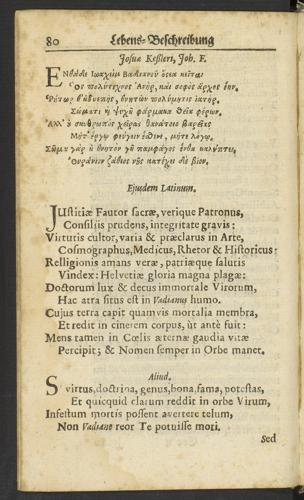 80 Lebens-Beschreibung
Josuæ Keßleri, Joh. F.
Ἐνθάδε Ἰωαχὶμ Βαδιανοῦ ὀςέα κεῖται
Ὃς πολύτεχνος Ἀνὴρ, καὶ σοφὸς ἀρχὸς ἔην.
Σώματι ἢ ψυχῇ φάρμακα θεῖα φέρων.
Μήτ' ἔργῳ φεύγειν μήτε λόγῳ.
Ejusdem Latinum.
JUstitiæ Fautor sacræ, verique Patronus,
Consiliis prudens, integritate gravis:
Virtutis cultor, varia & præclarus in Arte,
Cosmographus, Medicus, Rhetor & Historicus:
Relligionis amans veræ, patriæque salutis
Vindex: Helvetiæ gloria magna plagæ:
Doctorum lux & decus immortale Virorum,
Hac atra situs est in Vadianus humo.
Cujus terra capit quamvis mortalia membra,
Et redit in cinerem corpus, ùt antè fuit:
Mens tamen in Cœlis æternæ gaudia vitæ
Percipit; & Nomen semper in Orbe manet.
Aliud.
Si virtus, doctrina, genus, bona, fama, potestas,
Et quicquid clarum reddit in orbe Virum,
Infestum mortis possent avertere telum,
Non Vadiane reor Te potuisse mori.
Sed